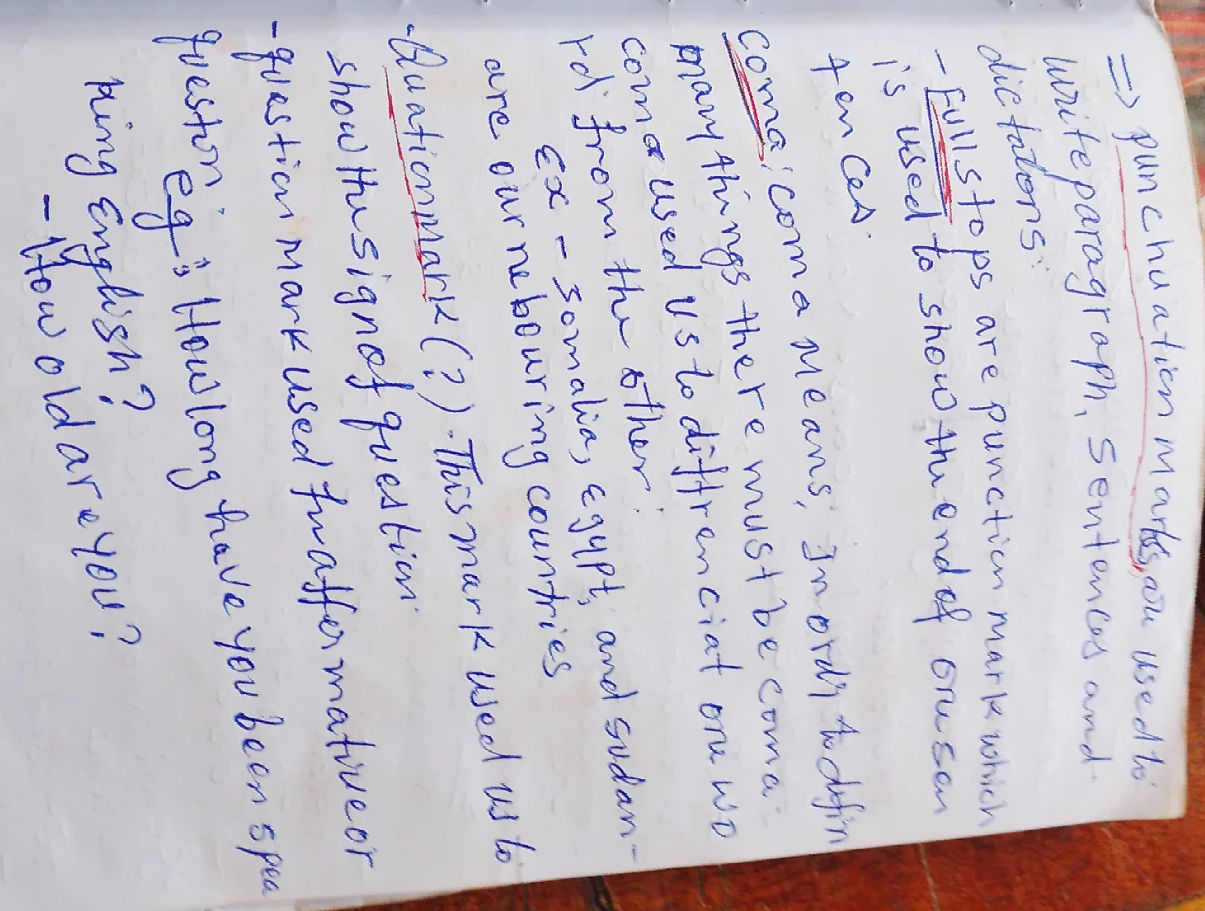 => punchuation marks, are used to
write paragraph, sentences and
dictations.
- Full stops are punction mark which
is used to show the end of one sen
tences.
coma; coma means, in ordr to defin
many things there must be coma.
coma used us to diffrenciat one wo
rd from the other.
Ex - somalia, Egypt, and sudan -
are our nebouring countries
- Quationmark (?). This mark used us to
show the sign of question.
- question mark used for affermative or
question. eg: How long have you been spea
king English?
- How old are you?